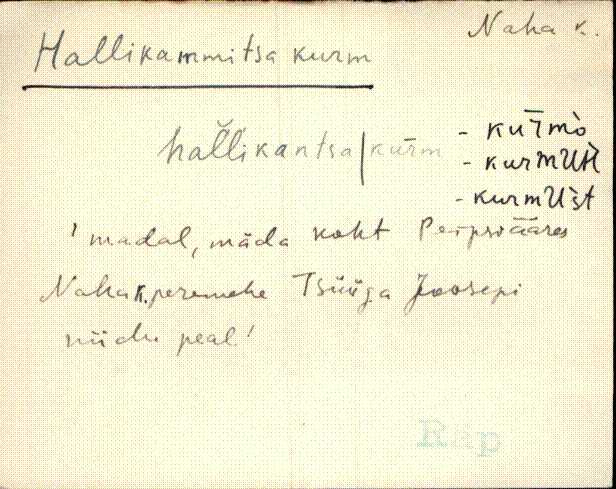 Naha k.
Hallikammitsa kurm
hal̆likantsa|kūrm - kur̄mò
- kurmUH
- kurmUst
' madal, mäda koht Peipsiääres
Naha k. peremehe Tsüüga Joosepi
niidu peal '
Räp